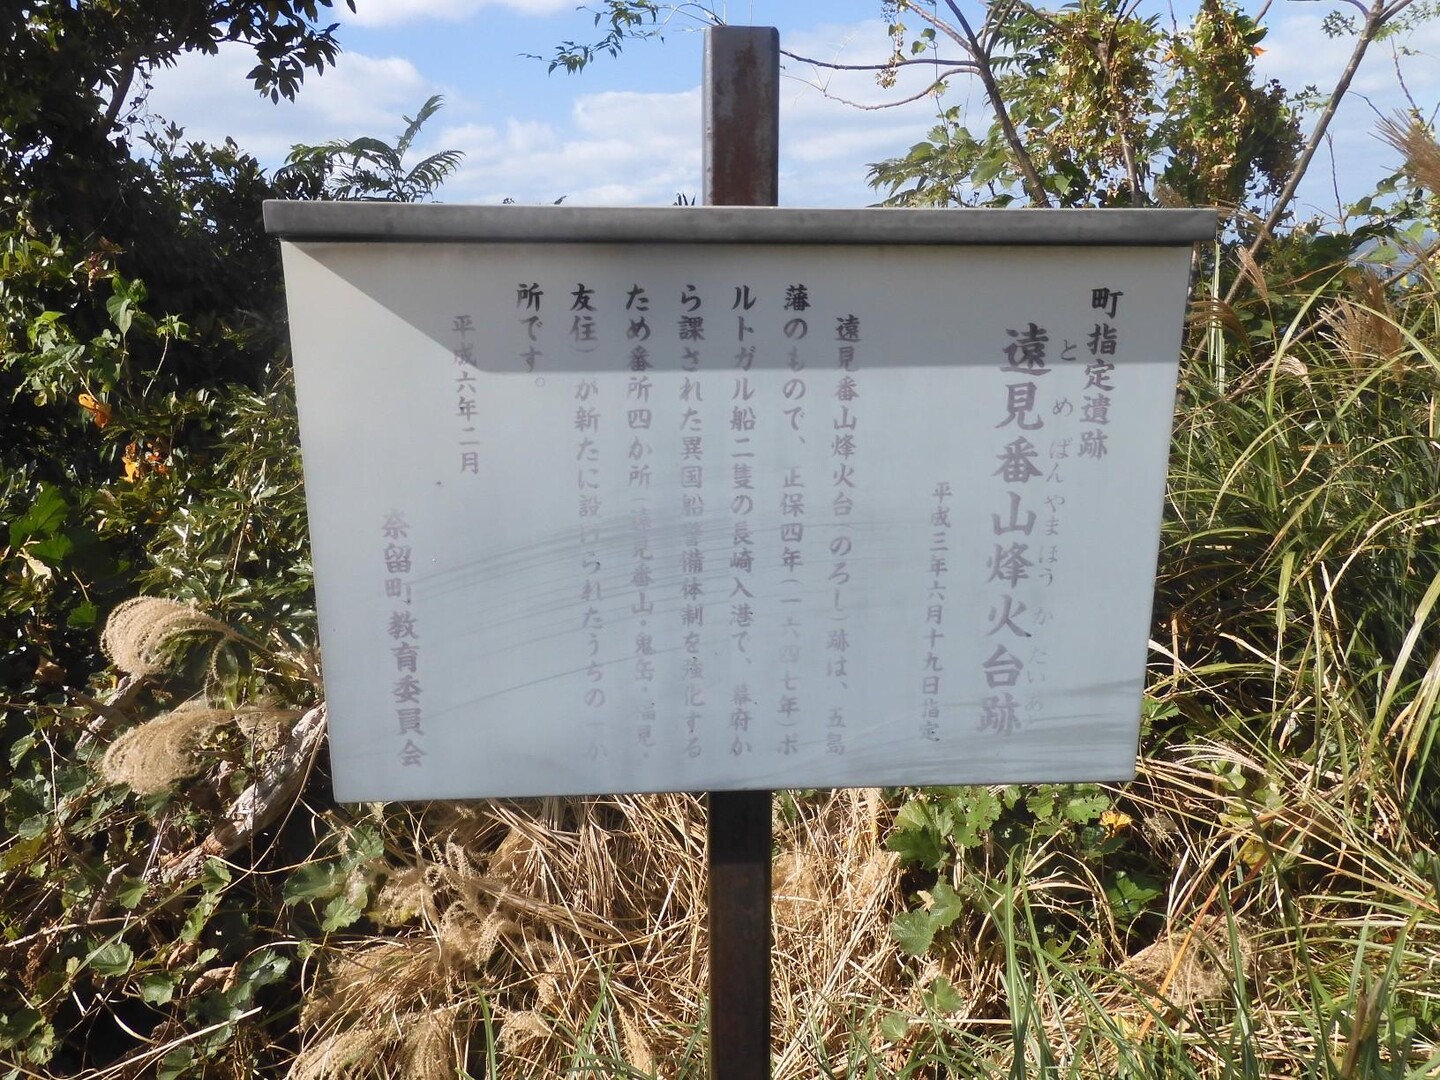 町指定遺跡
とめばんやまほうかだいあと
遠見番山烽火台跡
平成三年六月十九日指定
遠見番山烽火台(のろし)跡は、五島
藩のもので、正保四年(一六四七年)ポ
ルトガル船二隻の長崎入港で、幕府か
ら課された異国船警備体制を強化する
ため番所四か所(遠見番山・鬼岳・福見・
友住)が新たに設けられたうちの一か
所です。
平成六年二月
奈留町教育委員会